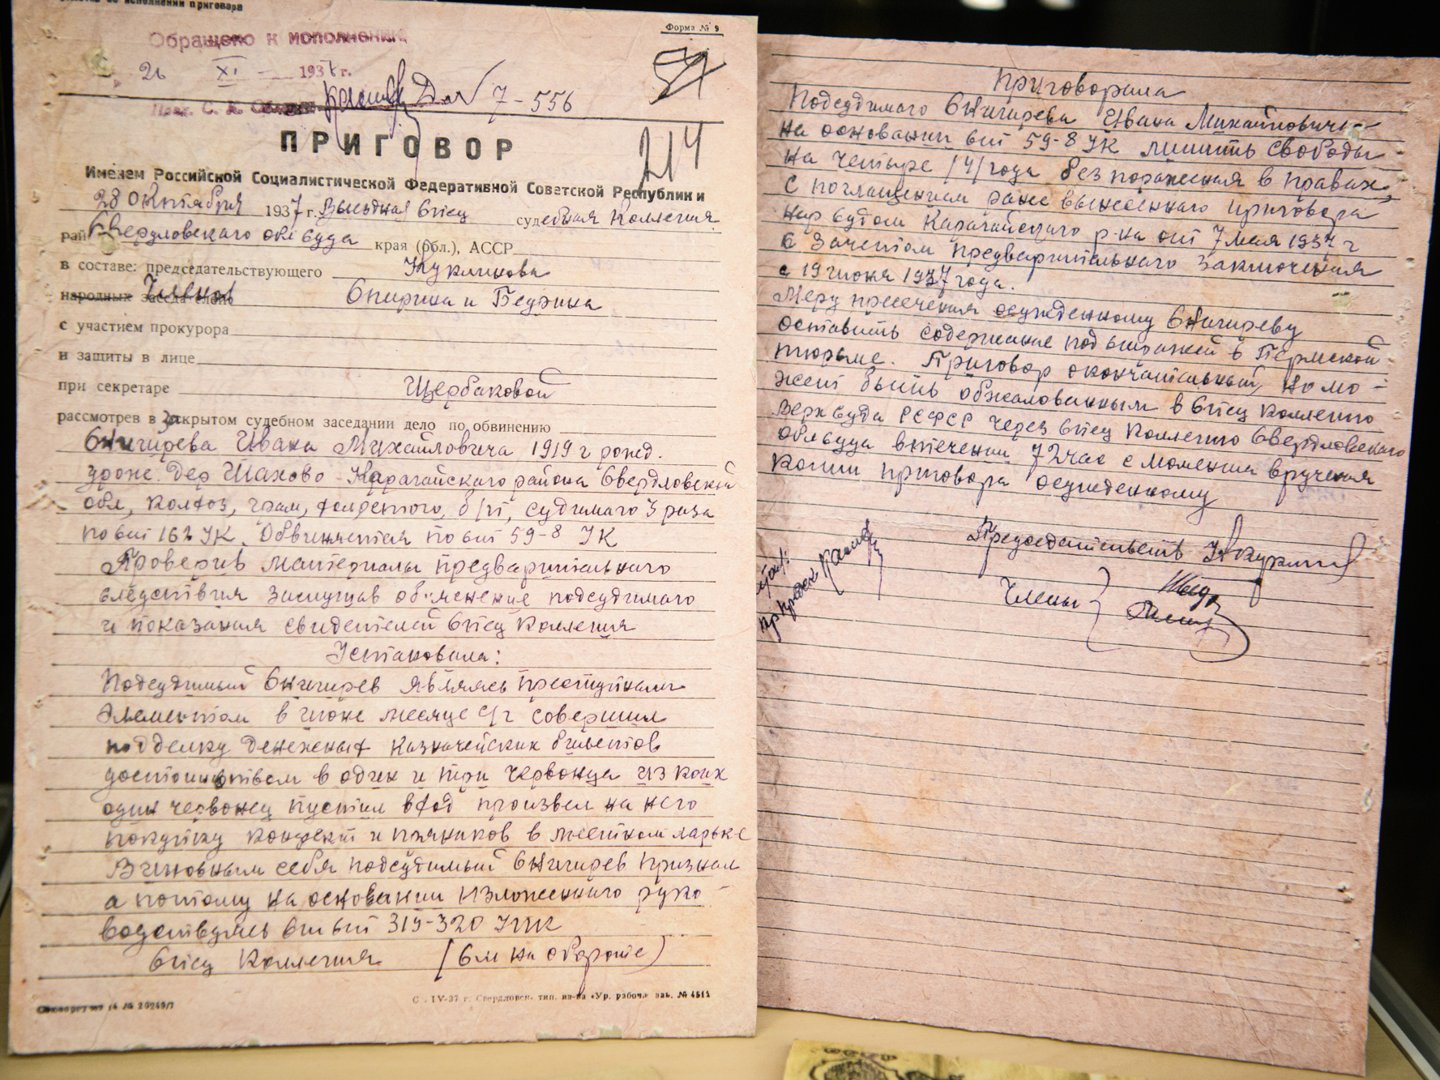 об исполнении приговора
Форма № 9
Обращено к исполнению
26 XI 1937 г.
7-556
214
ПРИГОВОР
Именем Российской Социалистической Федеративной Советской Республики
28 Октября 1937 г. Выездная Спец судебная Коллегия
рай Свердловского облсуда края (обл.), АССР
в составе: председательствующего Куклинова
народных заседателей Членов Спирина и Бедрина
с участием прокурора
и защиты в лице
при секретаре Щербаковой
рассмотрев в закрытом судебном заседании дело по обвинению
Снигирева Ивана Михайловича 1919 г рожд.
урож. Дер Шахово Карагайского района Свердловской
обл, колхоз, грам, холостого, б/п, судимого 3 раза
по ст 162 УК. Обвиняется по ст 59-8 УК
Проверив материалы предварительного
следствия заслушав объяснение подсудимого
и показания свидетелей Спец Коллегия
Установила:
Подсудимый Снигирев являясь преступным
элементом в июне месяце с/г совершил
подделку денежных казначейских билетов
достоинством в один и три червонца из коих
один червонец пустил в ход произвел на него
покупку конфект и пряников в местном ларьке
Виновным себя подсудимый Снигирев признал
а потому на основании изложенного руко
водствуясь ст ст 319-320 УПК
Спец Коллегия (См на обороте)
С. IV-37 г. Свердловск. тип. из-ва «Ур. рабоч.» зак. № 4511
Приговорила
Подсудимого Снигирева Ивана Михайловича
на основании ст 59-8 УК лишить свободы
на четыре /4/ года без поражения в правах,
с поглащением ранее вынесенного приговора
нар судом Карагайского р-на от 7 мая 1937 г
с зачетом предварительного заключения
с 19 июня 1937 года.
Меру пресечения осужденному Снигиреву
оставить содержание под стражей в Пермской
тюрьме. Приговор окончательный, но мо-
жет быть обжалованным в Спец Коллегию
Верхсуда РСФСР через Спец Коллегию Свердловского
облсуда в течении 72 час с момента вручения
копии приговора осужденному
Председательств
Члены